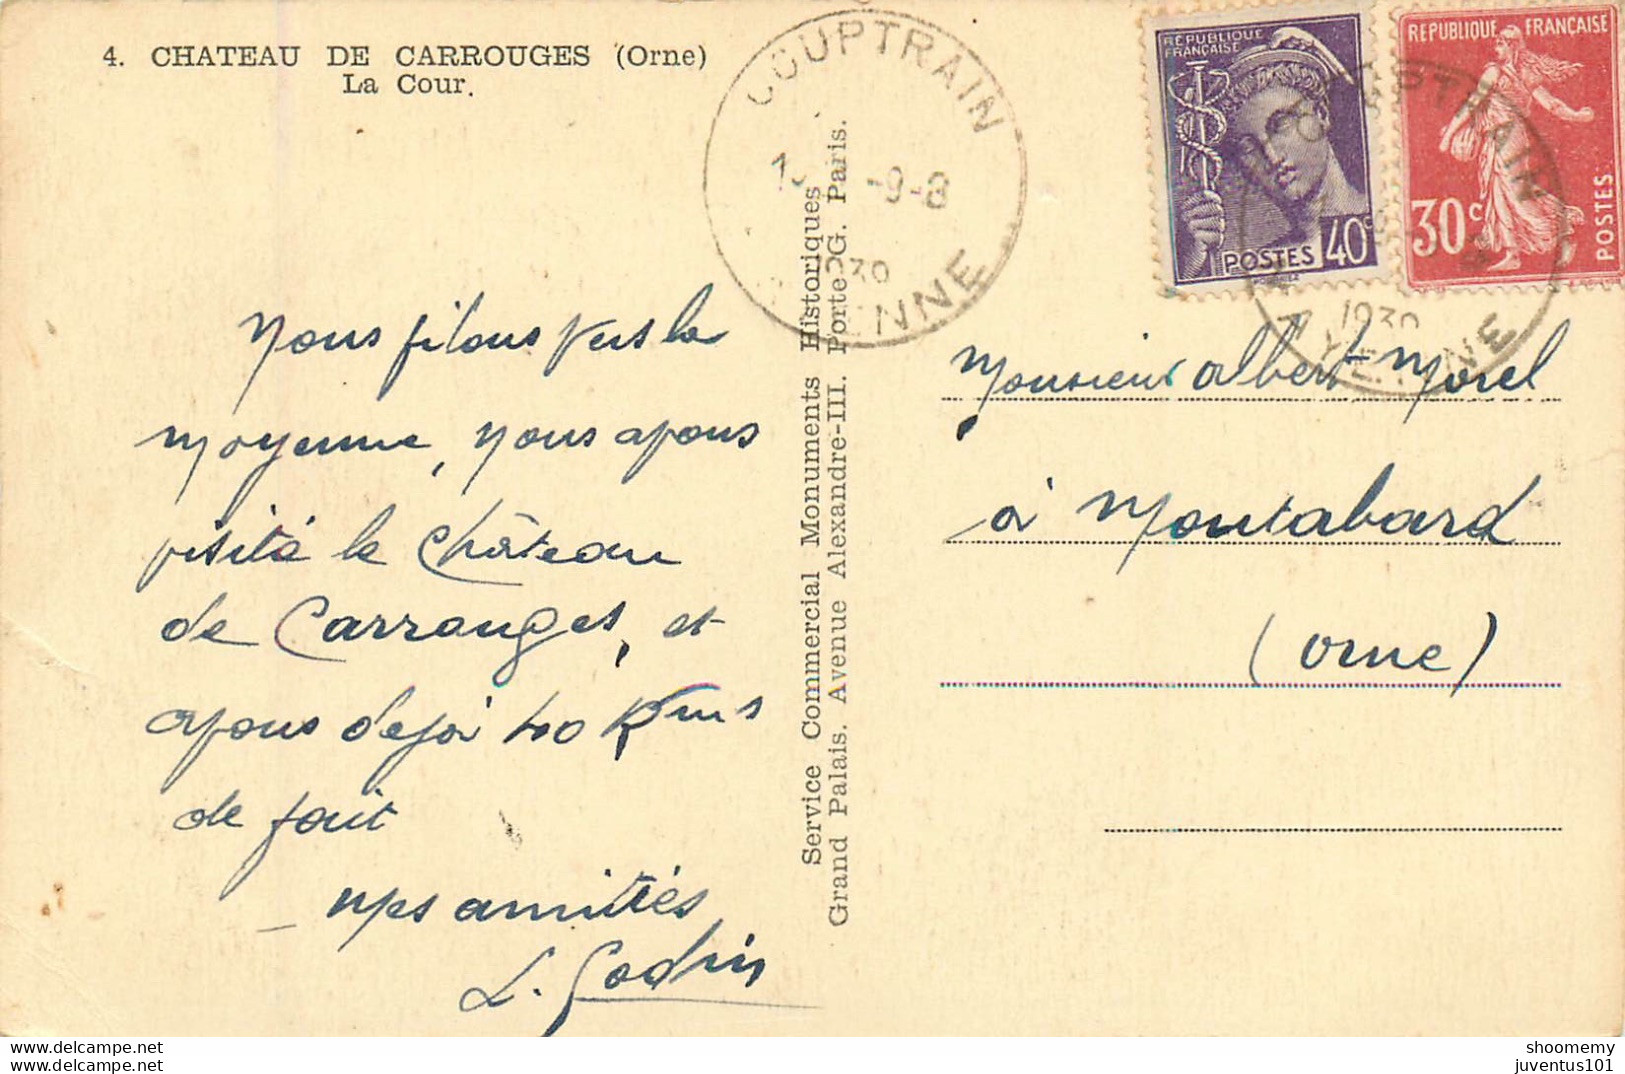 4. CHATEAU DE CARROUGES (Orne)
La Cour.
COUPTRAIN
-9-8
1939
REPUBLIQUE
FRANÇAISE
POSTES 40c
REPUBLIQUE FRANÇAISE
30c
POSTES
COUPTRAIN
1939
MAYENNE
Service Commercial Monuments Historiques
Grand Palais. Avenue Alexandre-III. Porte G. Paris.
Nous filons vers la
mayenne, nous avons
visité le château
de Carrouges, et
avons deja 40 Kms
de fait
mes amitiés
L. Godin
Monsieur Albert Morel
à Montabard
(Orne)
www.delcampe.net
your username
shoomemy
juventus101